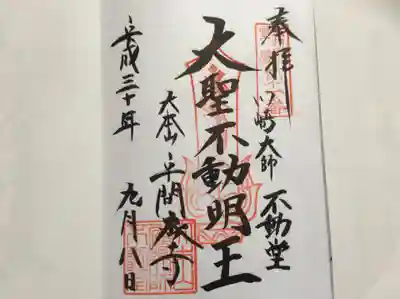 奉拝
川崎大師 不動堂
大聖不動明王
大本山 平間寺
平成三十年 九月八日